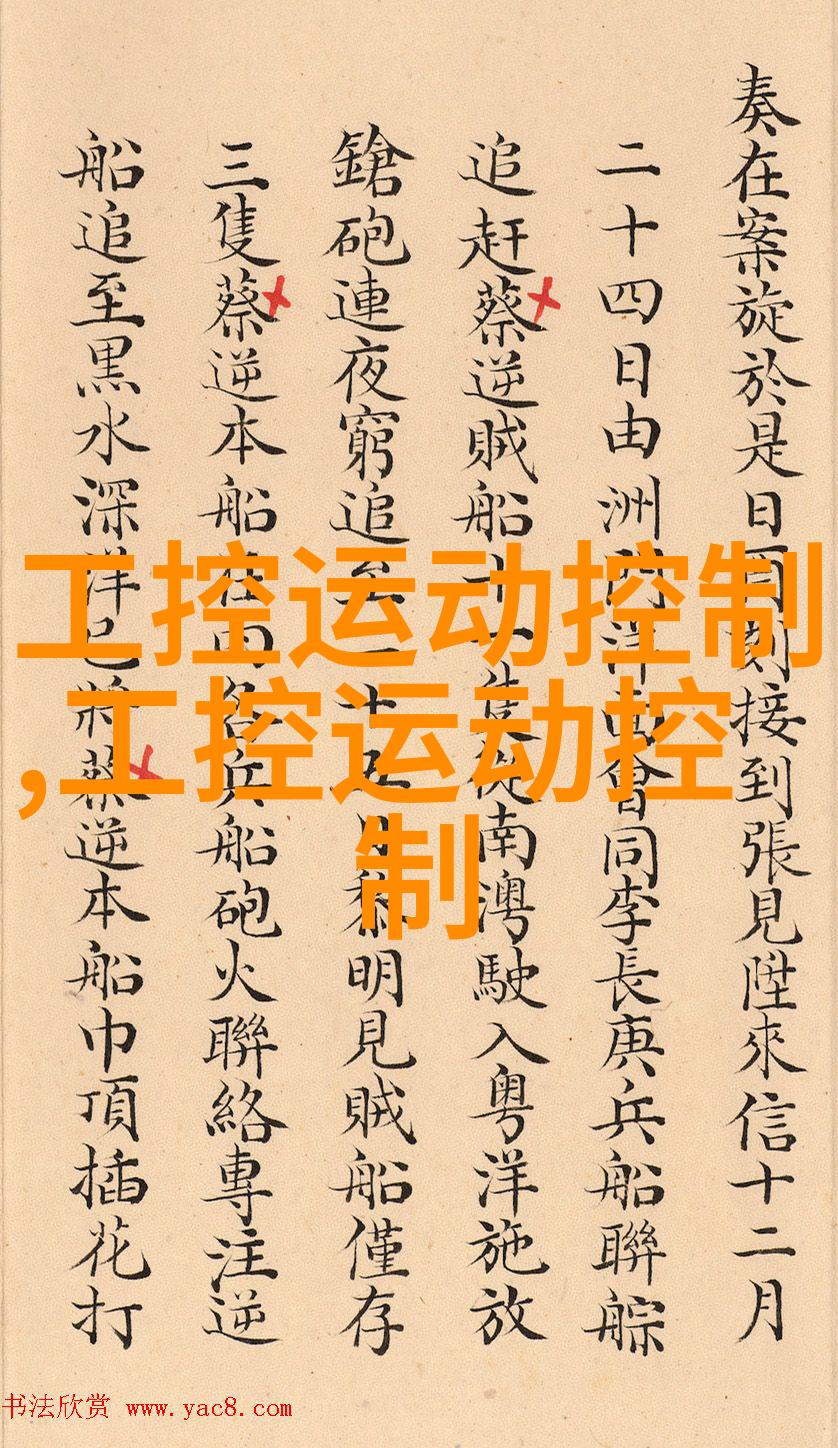 奏在案旋於是日酉刻接到張見陞來信十二月
二十四日由洲洋面會同李長庚兵船聯䑸
追赶蔡逆賊船十一隻從南澚駛入粤洋施放
鎗砲連夜窮追至二十五日黎明見賊船僅存
三隻蔡逆本船在内各兵船砲火聯絡專注逆
船追至黒水深洋已將蔡逆本船巾頂插花打
工控运动控制
,工控运动控
制
书法欣赏 www.yac8.com